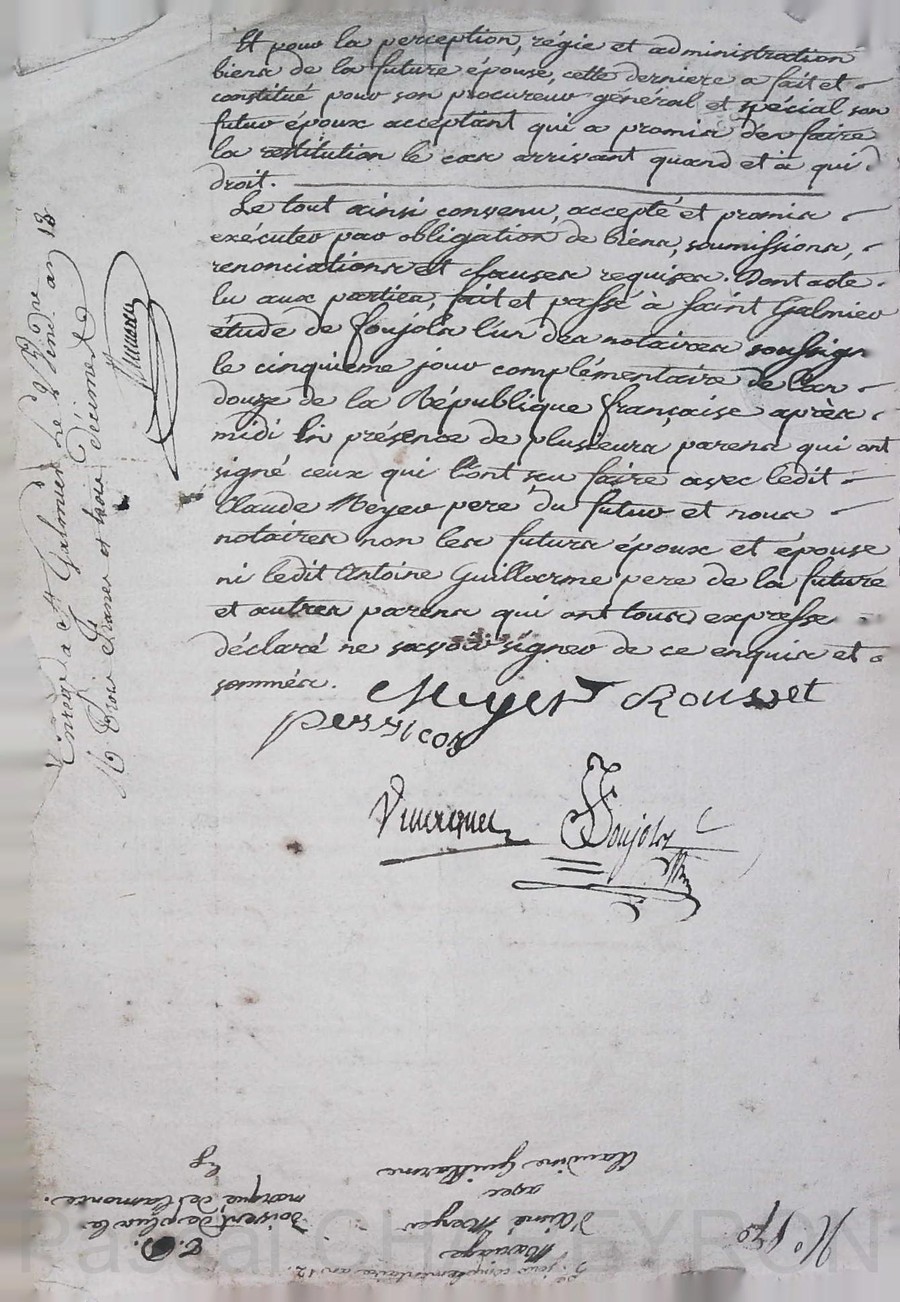 Et pour la perception, régie et administration
biens de la future épouse, cette derniere a fait et
constitué pour son procureur général et spécial son
futur époux acceptant qui a promis d'en faire
la restitution le cas arrivant quand et à qui
droit.
Le tout ainsi convenu, accepté et promis
exécuter par obligation de biens, soumissions,
renonciations et clauses requises. Dont acte
lu aux parties, fait et passé à Saint Galmier
étude de Foujols l'un des notaires soussign
le cinquieme jour complémentaire de l'an
douze de la République française après
midi En présence de plusieurs parens qui ont
signé ceux qui l'ont sçu faire avec ledit
Claude Meyer pere du futur et nous
notaires non les futurs époux et épouse
ni ledit Antoine Guillarme pere de la future
et autres parens qui ont tous expresse
déclaré ne savoir signer de ce enquis et
sommés.
Meyer Rousset
perricon
Foujols
Enregé. a St Galmier le 2 Vend. an 13
Trois francs et trois décimes
N° 170
5e. jour complémentaire an 12.
Mariage
d'Aimé Meyer
avec
Claudine Guillarme
doivent de plus la
marque de la monte.